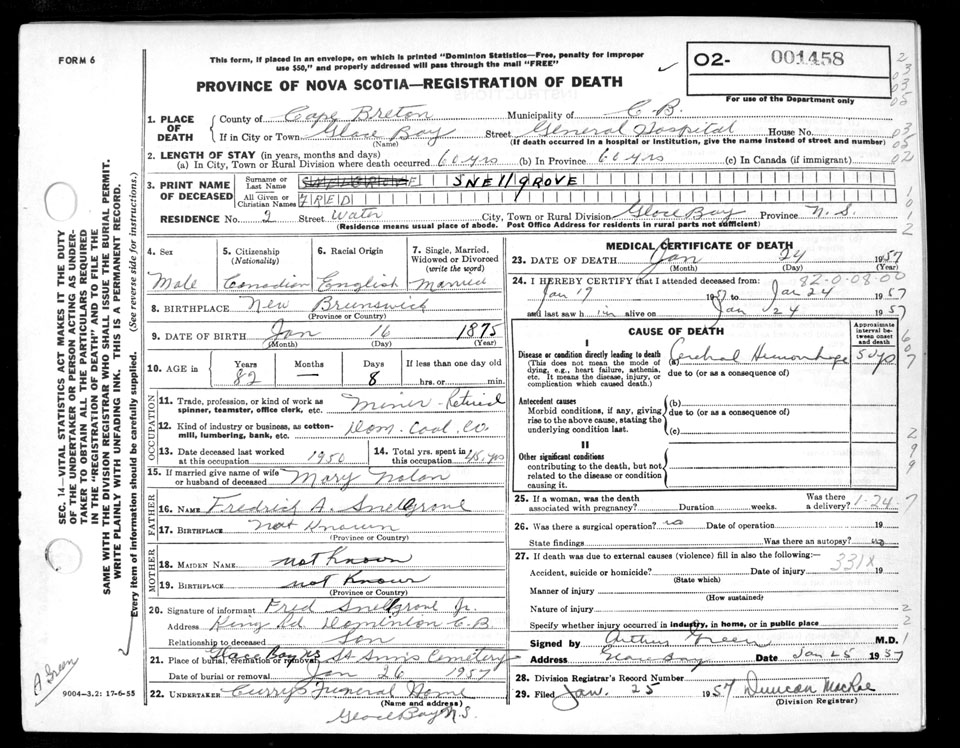 FORM 6
This form, if placed in an envelope, on which is printed "Dominion Statistics—Free, penalty for improper
use $50," and properly addressed will pass through the mail "FREE"
O2- 001458
For use of the Department only
PROVINCE OF NOVA SCOTIA—REGISTRATION OF DEATH
1. PLACE OF DEATH
County of Cape Breton Municipality of C.B.
If in City or Town Glace Bay Street General Hospital House No.
(Name) (If death occurred in a hospital or institution, give the name instead of street and number)
2. LENGTH OF STAY (in years, months and days)
(a) In City, Town or Rural Division where death occurred 60 yrs (b) In Province 60 yrs (c) In Canada (if immigrant)
3. PRINT NAME OF DECEASED
Surname or Last Name SNELLGROVE
All Given or Christian Names FRED
RESIDENCE No. 2 Street Water City, Town or Rural Division Glace Bay Province N.S.
(Residence means usual place of abode. Post Office Address for residents in rural parts not sufficient)
4. Sex Male
5. Citizenship (Nationality) Canadian
6. Racial Origin English
7. Single, Married, Widowed or Divorced (write the word) Married
8. BIRTHPLACE New Brunswick
(Province or Country)
9. DATE OF BIRTH Jan 16 1875
(Month) (Day) (Year)
10. AGE in Years 82 Months — Days 8 If less than one day old hrs. or min.
OCCUPATION
11. Trade, profession, or kind of work as spinner, teamster, office clerk, etc. Miner - Retired
12. Kind of industry or business, as cotton-mill, lumbering, bank, etc. Dom. Coal. Co.
13. Date deceased last worked at this occupation 1950
14. Total yrs. spent in this occupation 48 yrs
15. If married give name of wife or husband of deceased Mary Nolan
FATHER
16. NAME Fredrick A. Snellgrove
17. BIRTHPLACE Not Known
(Province or Country)
MOTHER
18. MAIDEN NAME not Known
19. BIRTHPLACE not Known
(Province or Country)
20. Signature of informant Fred Snellgrove Jr.
Address King Rd Dominion C.B.
Relationship to deceased Son
21. Place of burial, cremation or removal Glace Bay NS St Anns Cemetery
Date of burial or removal Jan 26 1957
22. UNDERTAKER Curry's Funeral Home
(Name and address)
Glace Bay N.S.
MEDICAL CERTIFICATE OF DEATH
23. DATE OF DEATH Jan 24 1957
(Month) (Day) (Year)
24. I HEREBY CERTIFY that I attended deceased from: 82-0-08-00
Jan 17 1957 to Jan 24 1957
and last saw him alive on Jan 24 1957
CAUSE OF DEATH
Approximate interval between onset and death
I
Disease or condition directly leading to death
(This does not mean the mode of dying, e.g., heart failure, asthenia, etc. It means the disease, injury, or complication which caused death.)
(a) Cerebral Hemorrhage
due to (or as a consequence of)
Antecedent causes
Morbid conditions, if any, giving rise to the above cause, stating the underlying condition last.
(b)
due to (or as a consequence of)
(c)
II
Other significant conditions
contributing to the death, but not related to the disease or condition causing it.
25. If a woman, was the death associated with pregnancy? Duration weeks. Was there a delivery? 1-24-7
26. Was there a surgical operation? no Date of operation 19
State findings Was there an autopsy? no
27. If death was due to external causes (violence) fill in also the following:—
Accident, suicide or homicide? Date of injury 331X 19
(State which)
Manner of injury
(How sustained)
Nature of injury
Specify whether injury occurred in industry, in home, or in public place
Signed by Arthur Green M.D.
Address Glace Bay Date Jan 25 1957
28. Division Registrar's Record Number
29. Filed Jan. 25 1957 Duncan MacRae
(Division Registrar)
SEC. 14—VITAL STATISTICS ACT MAKES IT THE DUTY
OF THE UNDERTAKER OR PERSON ACTING AS UNDER-
TAKER TO OBTAIN ALL THE PARTICULARS REQUIRED
IN THE "REGISTRATION OF DEATH" AND TO FILE THE
SAME WITH THE DIVISION REGISTRAR WHO SHALL ISSUE THE BURIAL PERMIT.
WRITE PLAINLY WITH UNFADING INK. THIS IS A PERMANENT RECORD.
Every item of information should be carefully supplied. (See reverse side for instructions.)
A Green
9004—3.2: 17-6-55